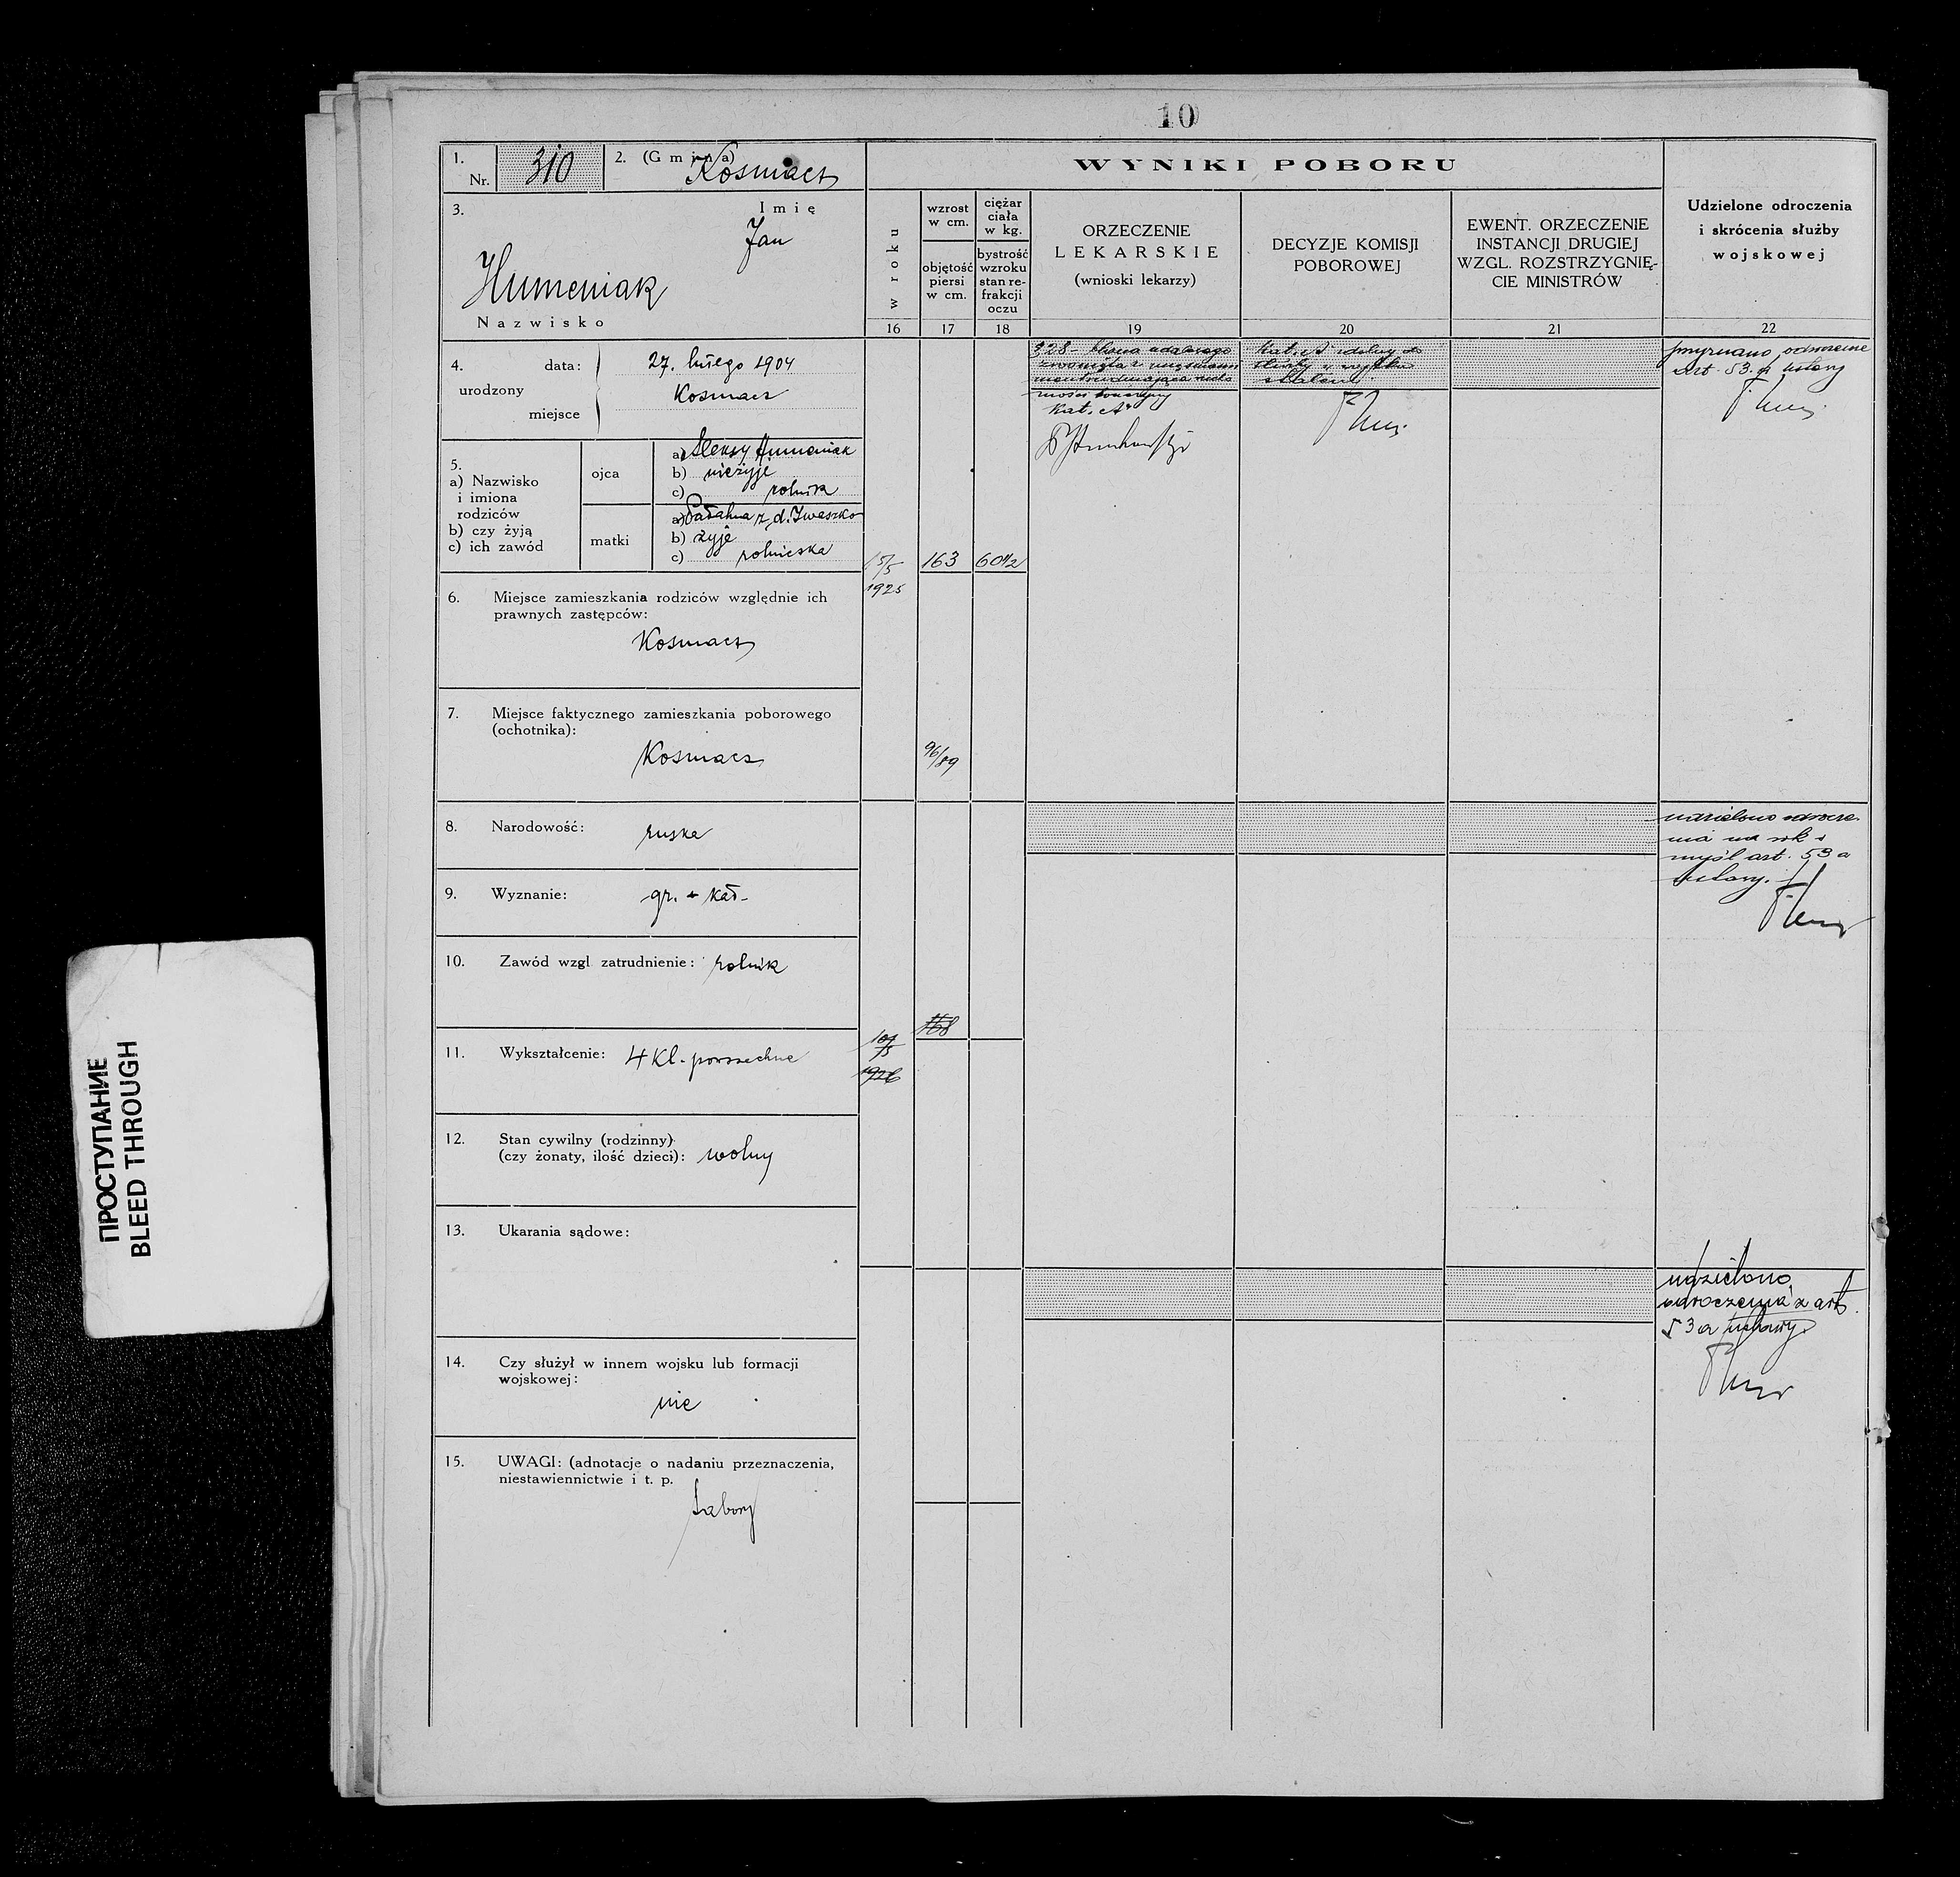 10
1.
Nr. 310
2. (Gmina) Kosmacz
WYNIKI POBORU
3.
Imię
Jan
Humeniak
Nazwisko
w roku
wzrost
w cm.
objętość
piersi
w cm.
ciężar
ciała
w kg.
bystrość
wzroku
stan re-
frakcji
oczu
ORZECZENIE
LEKARSKIE
(wnioski lekarzy)
DECYZJE KOMISJI
POBOROWEJ
EWENT. ORZECZENIE
INSTANCJI DRUGIEJ
WZGL. ROZSTRZYGNIĘ-
CIE MINISTRÓW
Udzielone odroczenia
i skrócenia służby
wojskowej
16 17 18 19 20 21 22
4.
urodzony
data: 27. lutego 1904
miejsce Kosmacz
5.
a) Nazwisko
i imiona
rodziców
b) czy żyją
c) ich zawód
ojca
a) Aleksy Humeniak
b) nieżyje
c) rolnik
matki
a) Parahna z d. Iwaszko
b) żyje
c) rolniczka
6. Miejsce zamieszkania rodziców względnie ich
prawnych zastępców:
Kosmacz
7. Miejsce faktycznego zamieszkania poborowego
(ochotnika):
Kosmacz
8. Narodowość: ruska
9. Wyznanie: gr. kat.
10. Zawód wzgl. zatrudnienie: rolnik
11. Wykształcenie: 4 kl. powszechne
12. Stan cywilny (rodzinny)
(czy żonaty, ilość dzieci): wolny
13. Ukarania sądowe:
14. Czy służył w innem wojsku lub formacji
wojskowej:
nie
15. UWAGI: (adnotacje o nadaniu przeznaczenia,
niestawiennictwie i t. p.
Tabory
15/5
1925
163
60 1/2
96/89
168
1926
Kat. A
Kat. A zdolny do
służby w wojsku
stałem
przyznano odroczenie
Art. 53. a ustawy
udzielono odrocze
nia na rok w
myśl art. 53 a
ustawy.
udzielono
odroczenia z art.
53 a ustawy
ПРОСТУПАНИЕ
BLEED THROUGH